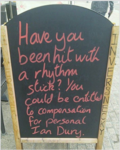 Have you
been hit with
a rhythm
stick? You
could be entitled
to compensation
for personal
Ian Dury.